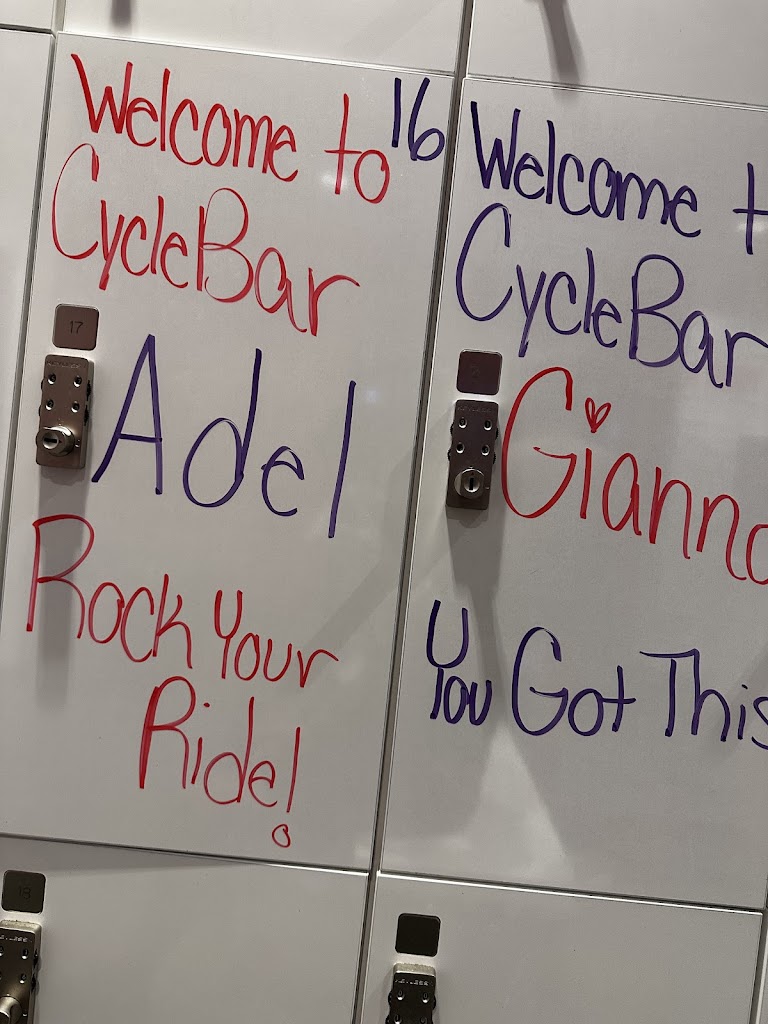 Welcome to
CycleBar
17
Adel
Rock Your
Ride!
16
Welcome t
CycleBar
Gianna
You Got This
18
KEYLESS
KEYLESS